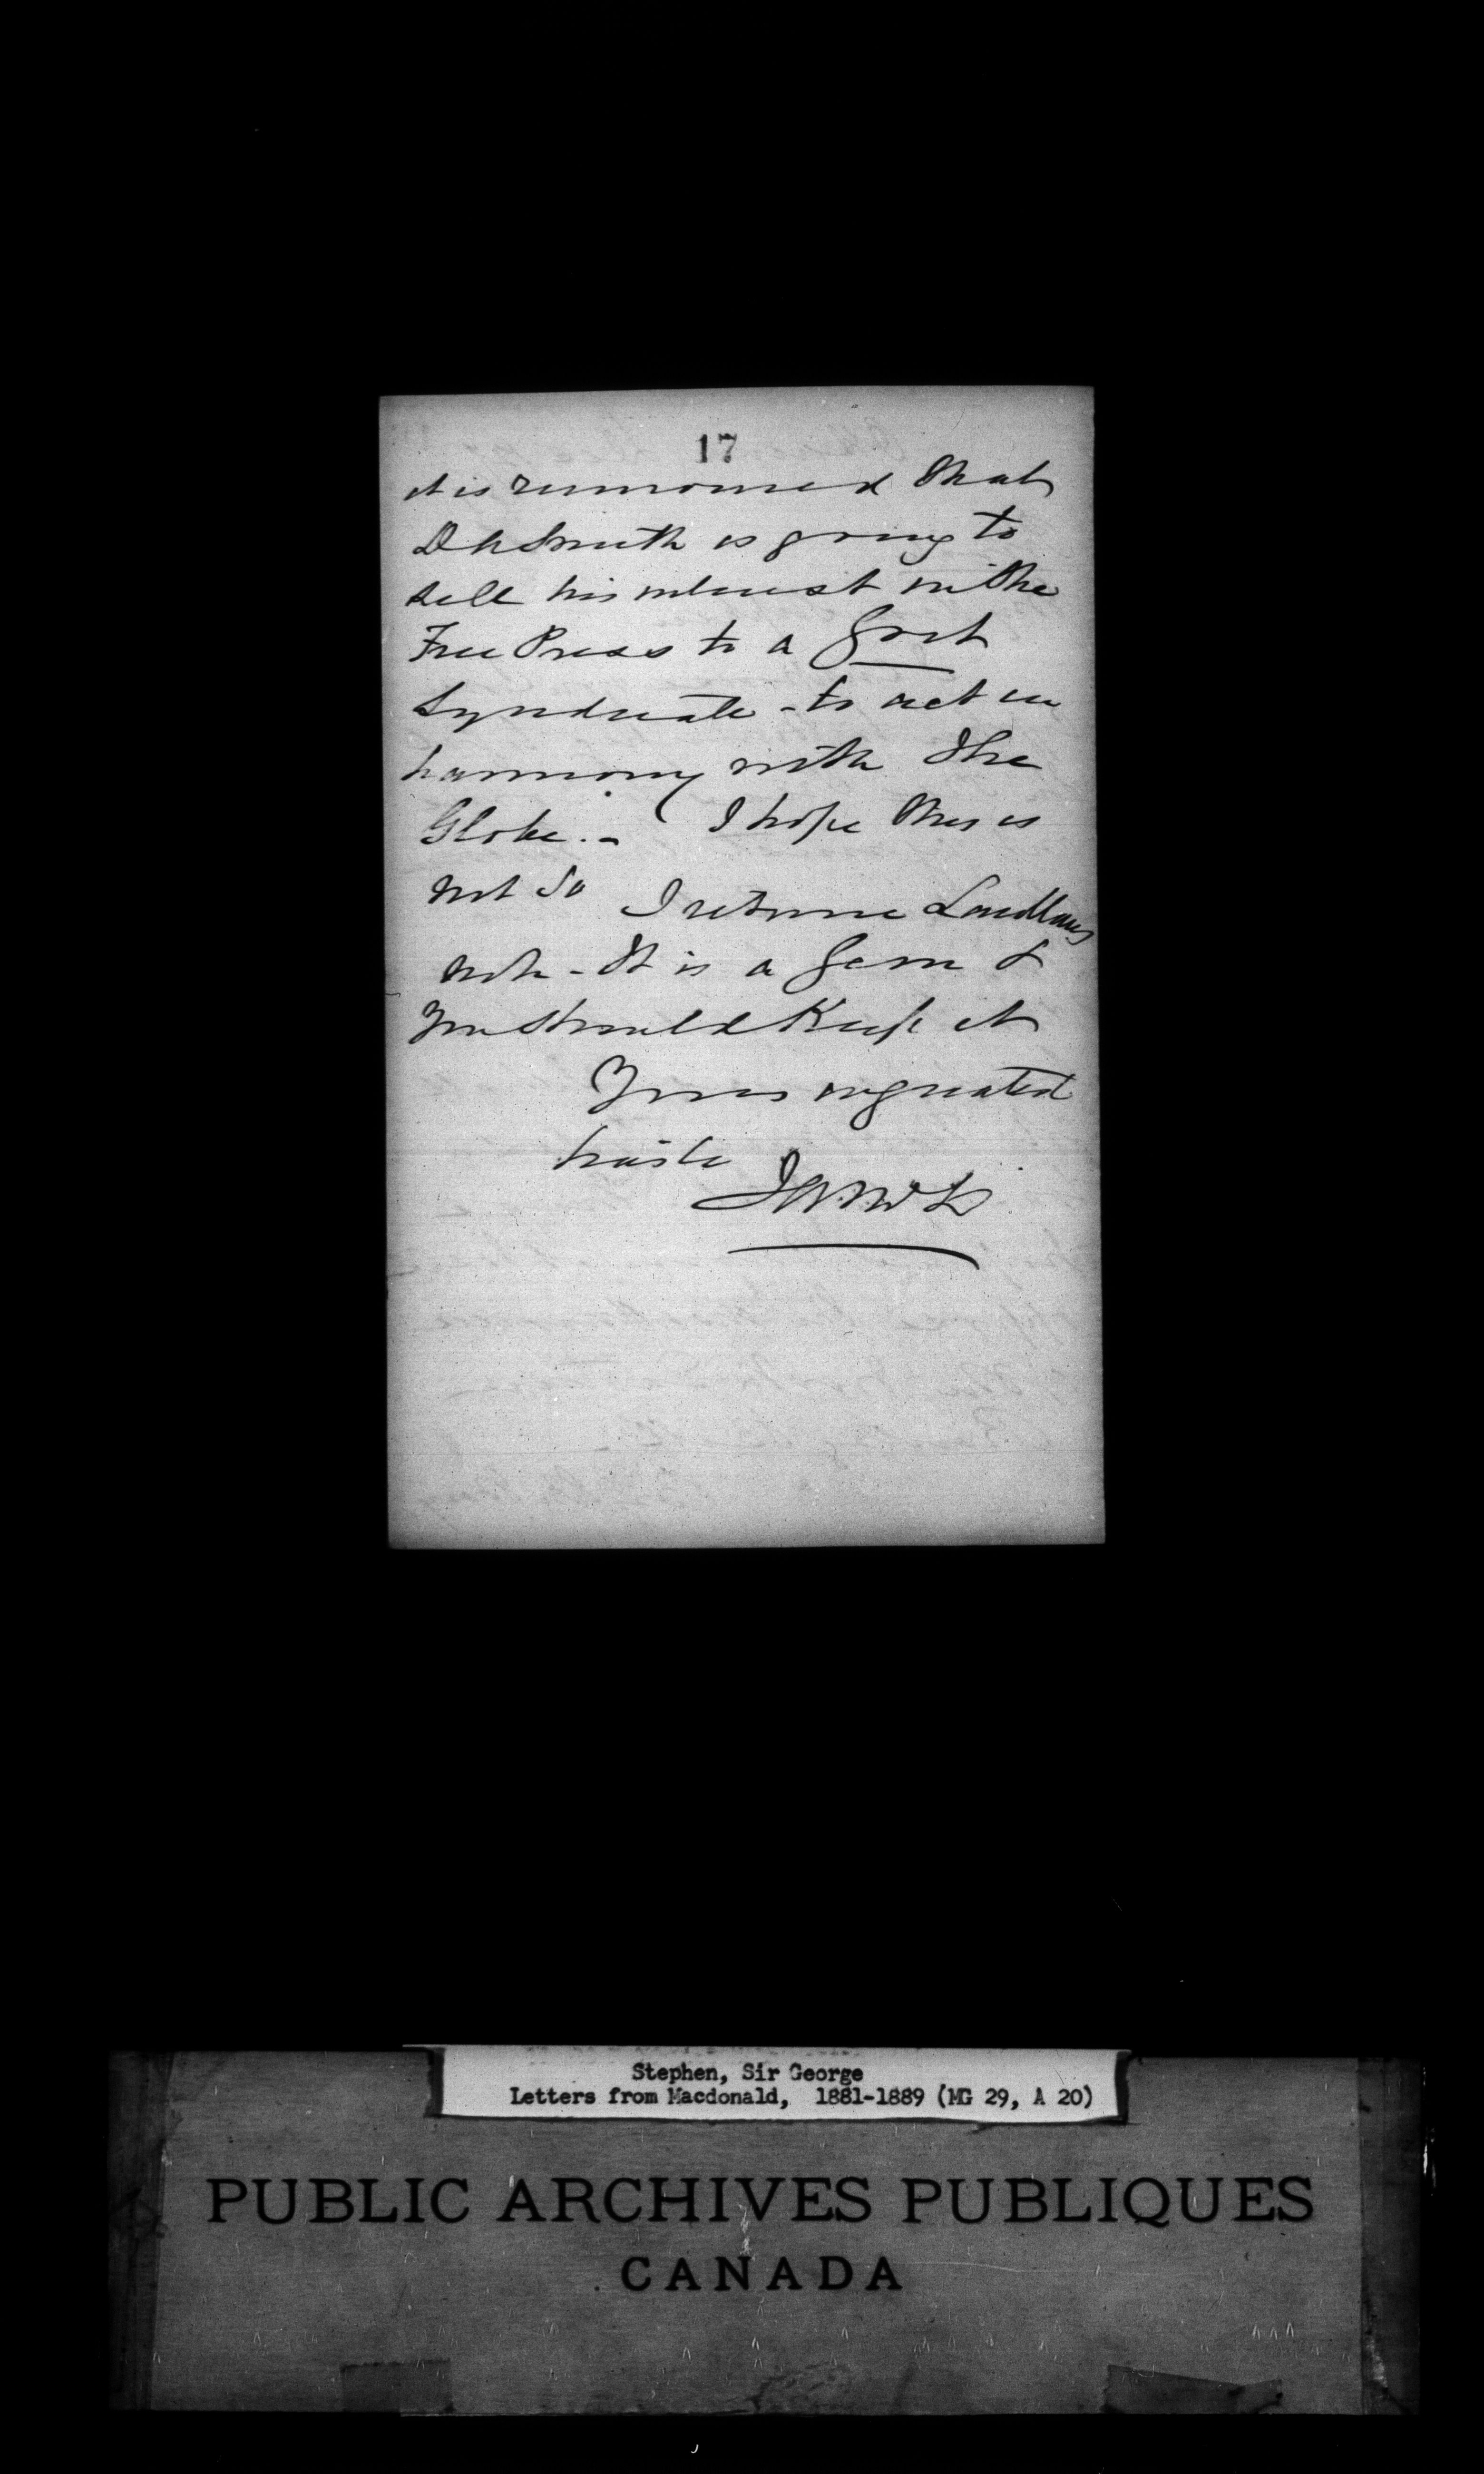 17
it is rumoured that
DASmith is going to
sell his interest in the
Free Press to a Grit
Syndicate - to act in
harmony with the
Globe. - I hope this is
not so I return Laidlaws
note - It is a Gem &
You should Keep it
Yours in great
haste
JAMcD
Stephen, Sir George
Letters from Macdonald, 1881-1889 (MG 29, A 20)
PUBLIC ARCHIVES PUBLIQUES
CANADA